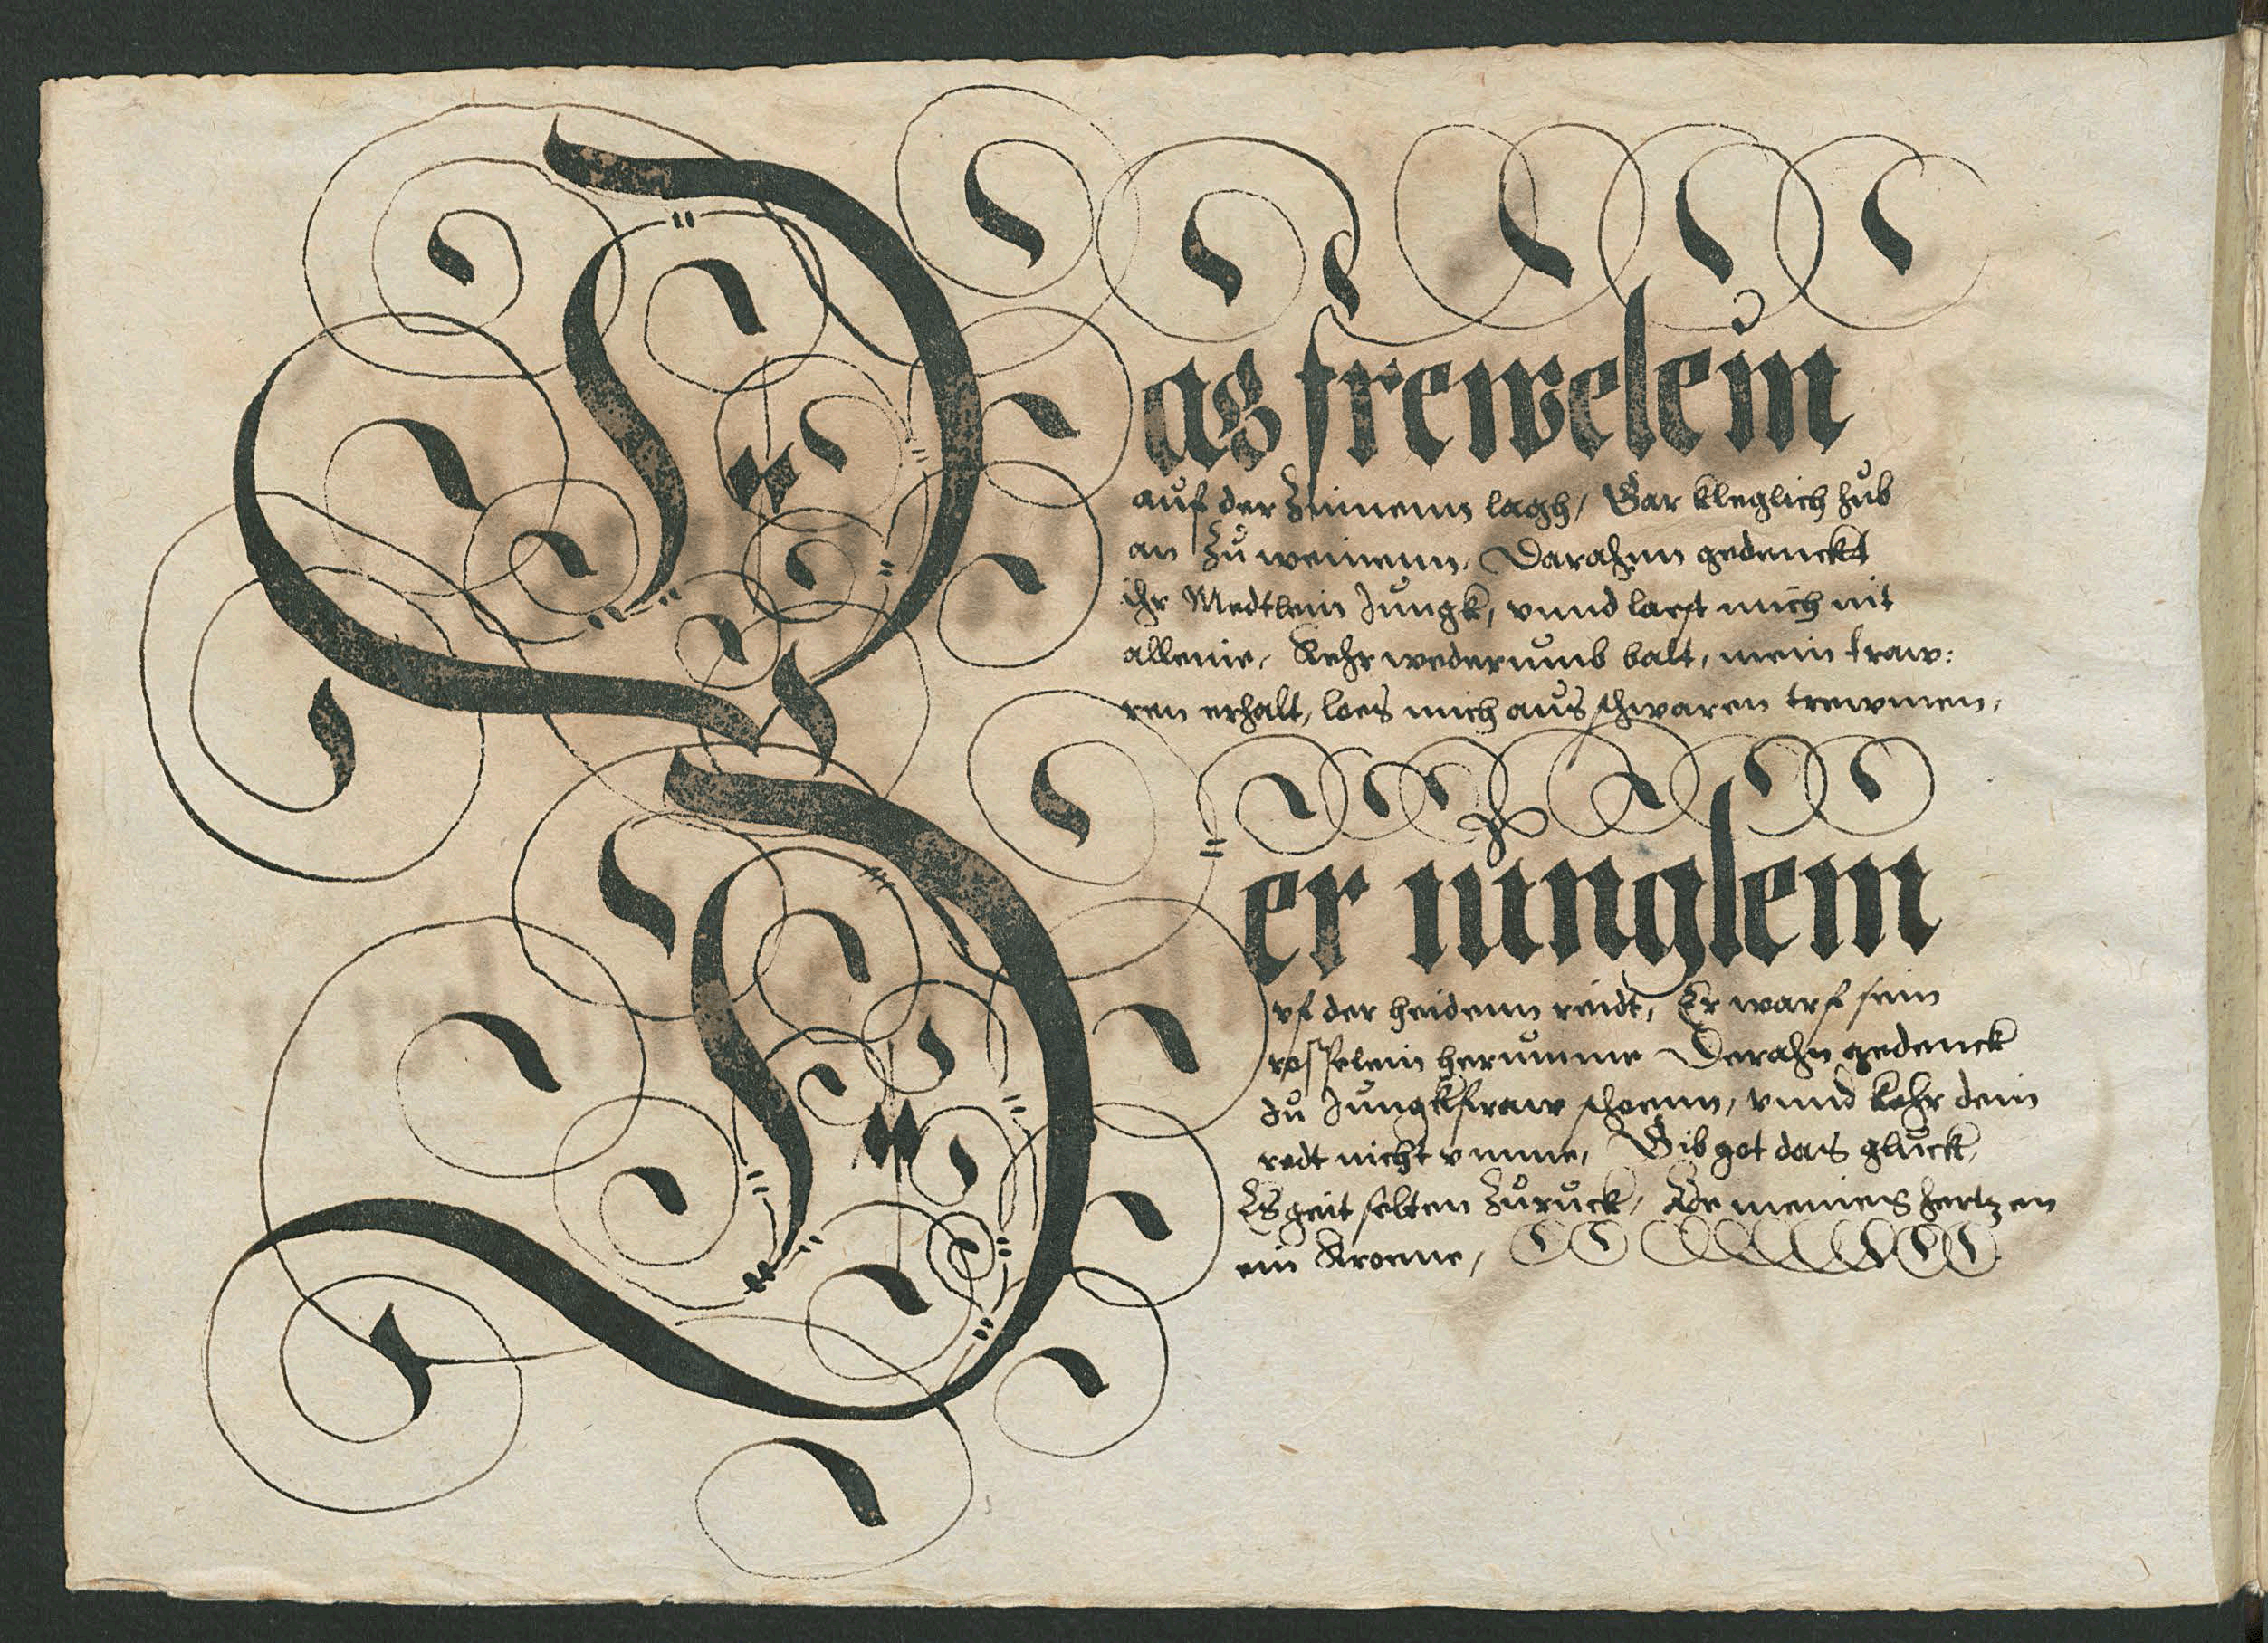 Das frewelein
auf der Zinnenn lagh, Gar kleglich hub
an Zu weinenn, Darahnn gedenckt
ihr Medtlein Jungk, vnnd laest mich nit
alleine, Kehr wederumb balt, mein traw:
ren erhalt, loes mich aus schwaren trewmen,
Der iunglein
vf der heidenn reidt, Er warf sein
rosselein herumme Derahn gedenck
du Jungkfraw schoenn, vnnd kehr dein
redt nicht vmme, Gib got das gluck,
Es geit selten Zuruck, De meines hertzen
ein Kroene,